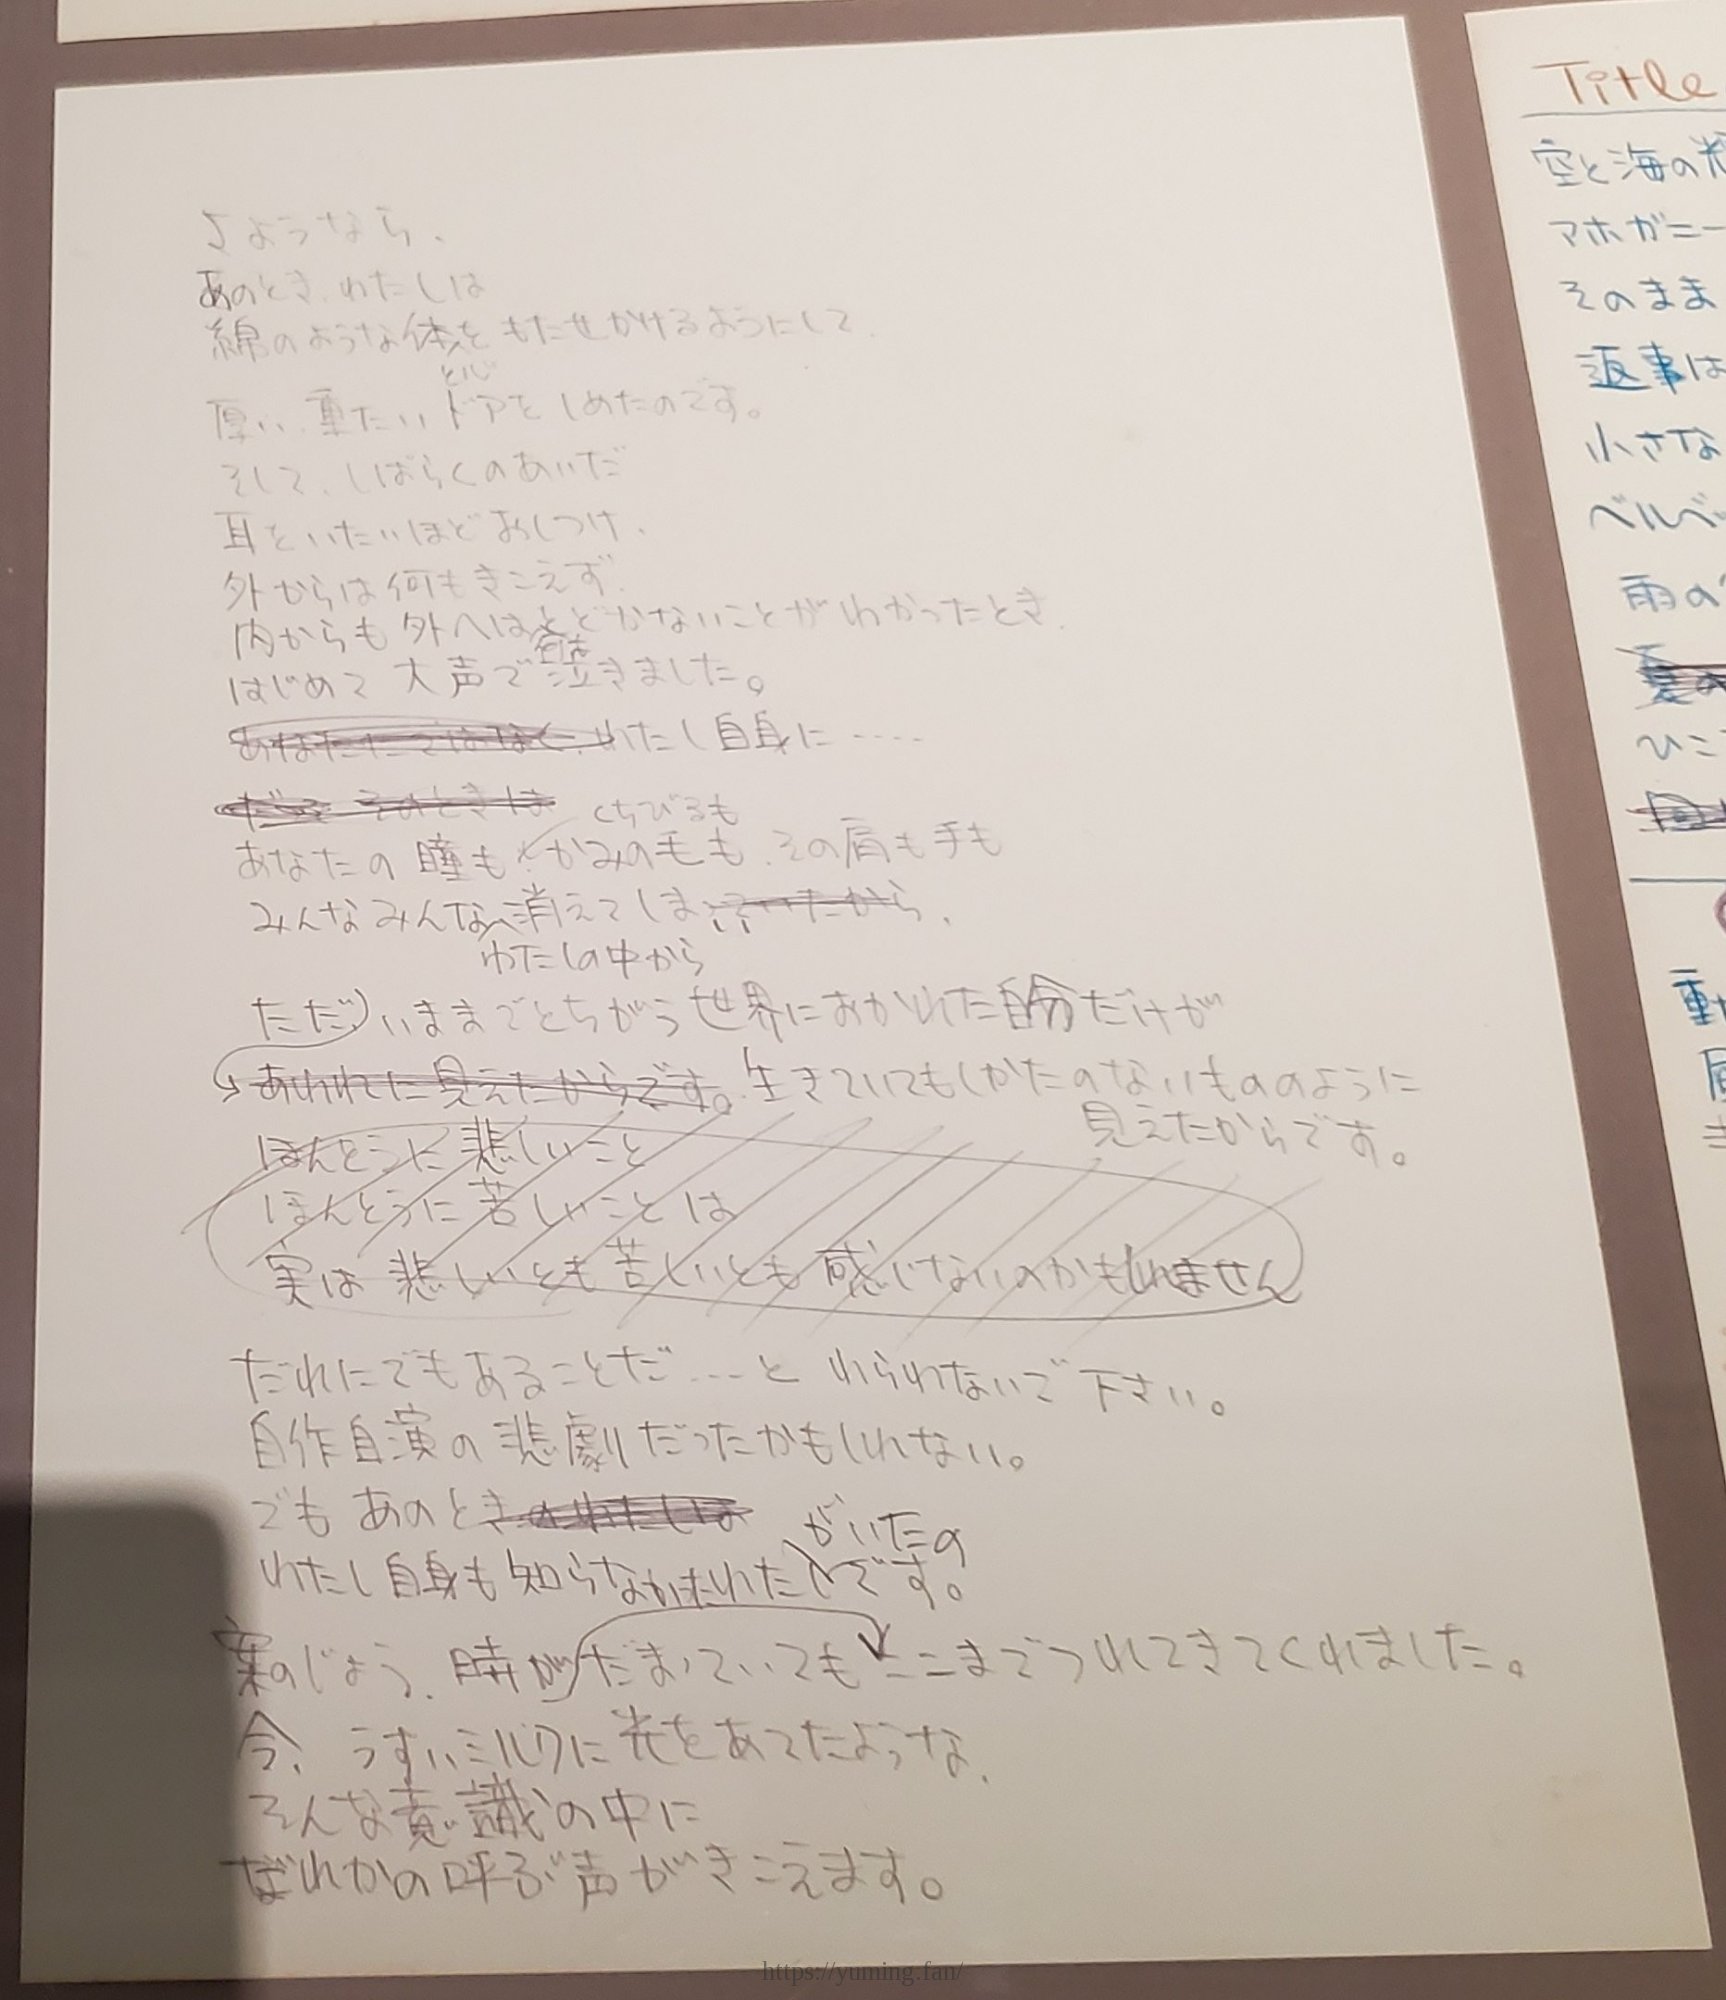 さようなら、
あのとき、わたしは
綿のような体をもたせかけるようにして、
とじ
厚い、重たいドアをしめたのです。
そして、しばらくのあいだ
耳をいたいほどおしつけ、
外からは何もきこえず、
内からも外へはとどかないことがわかったとき、
はじめて大声で泣きました。
あなたにではなく、わたし自身に‥‥
だって そのときは くちびるも
あなたの瞳も、かみの毛も、その肩も手も
みんなみんな消えてしまっていたから、
わたしの中から
ただ、いままでとちがう世界におかれた自分だけが
あわれに見えたからです。生きていてもしかたのないもののように
見えたからです。
ほんとうに悲しいこと
ほんとうに苦しいことは
実は悲しいとも苦しいとも感じないのかもしれません
だれにでもあることだ‥‥と わらわないで下さい。
自作自演の悲劇だったかもしれない。
でもあのときのわたしは
がいたの
わたし自身も知らなかったわたしです。
案のじょう、時がだまっていてもここまでつれてきてくれました。
今、うすいミルクに光をあてたような、
そんな意識の中に
だれかの呼ぶ声がきこえます。
Title
空と海の
マホガニー
そのまま
返事は
小さな
ベルベッ
雨の
夏の
ひこ
動
https://yuming.fan/